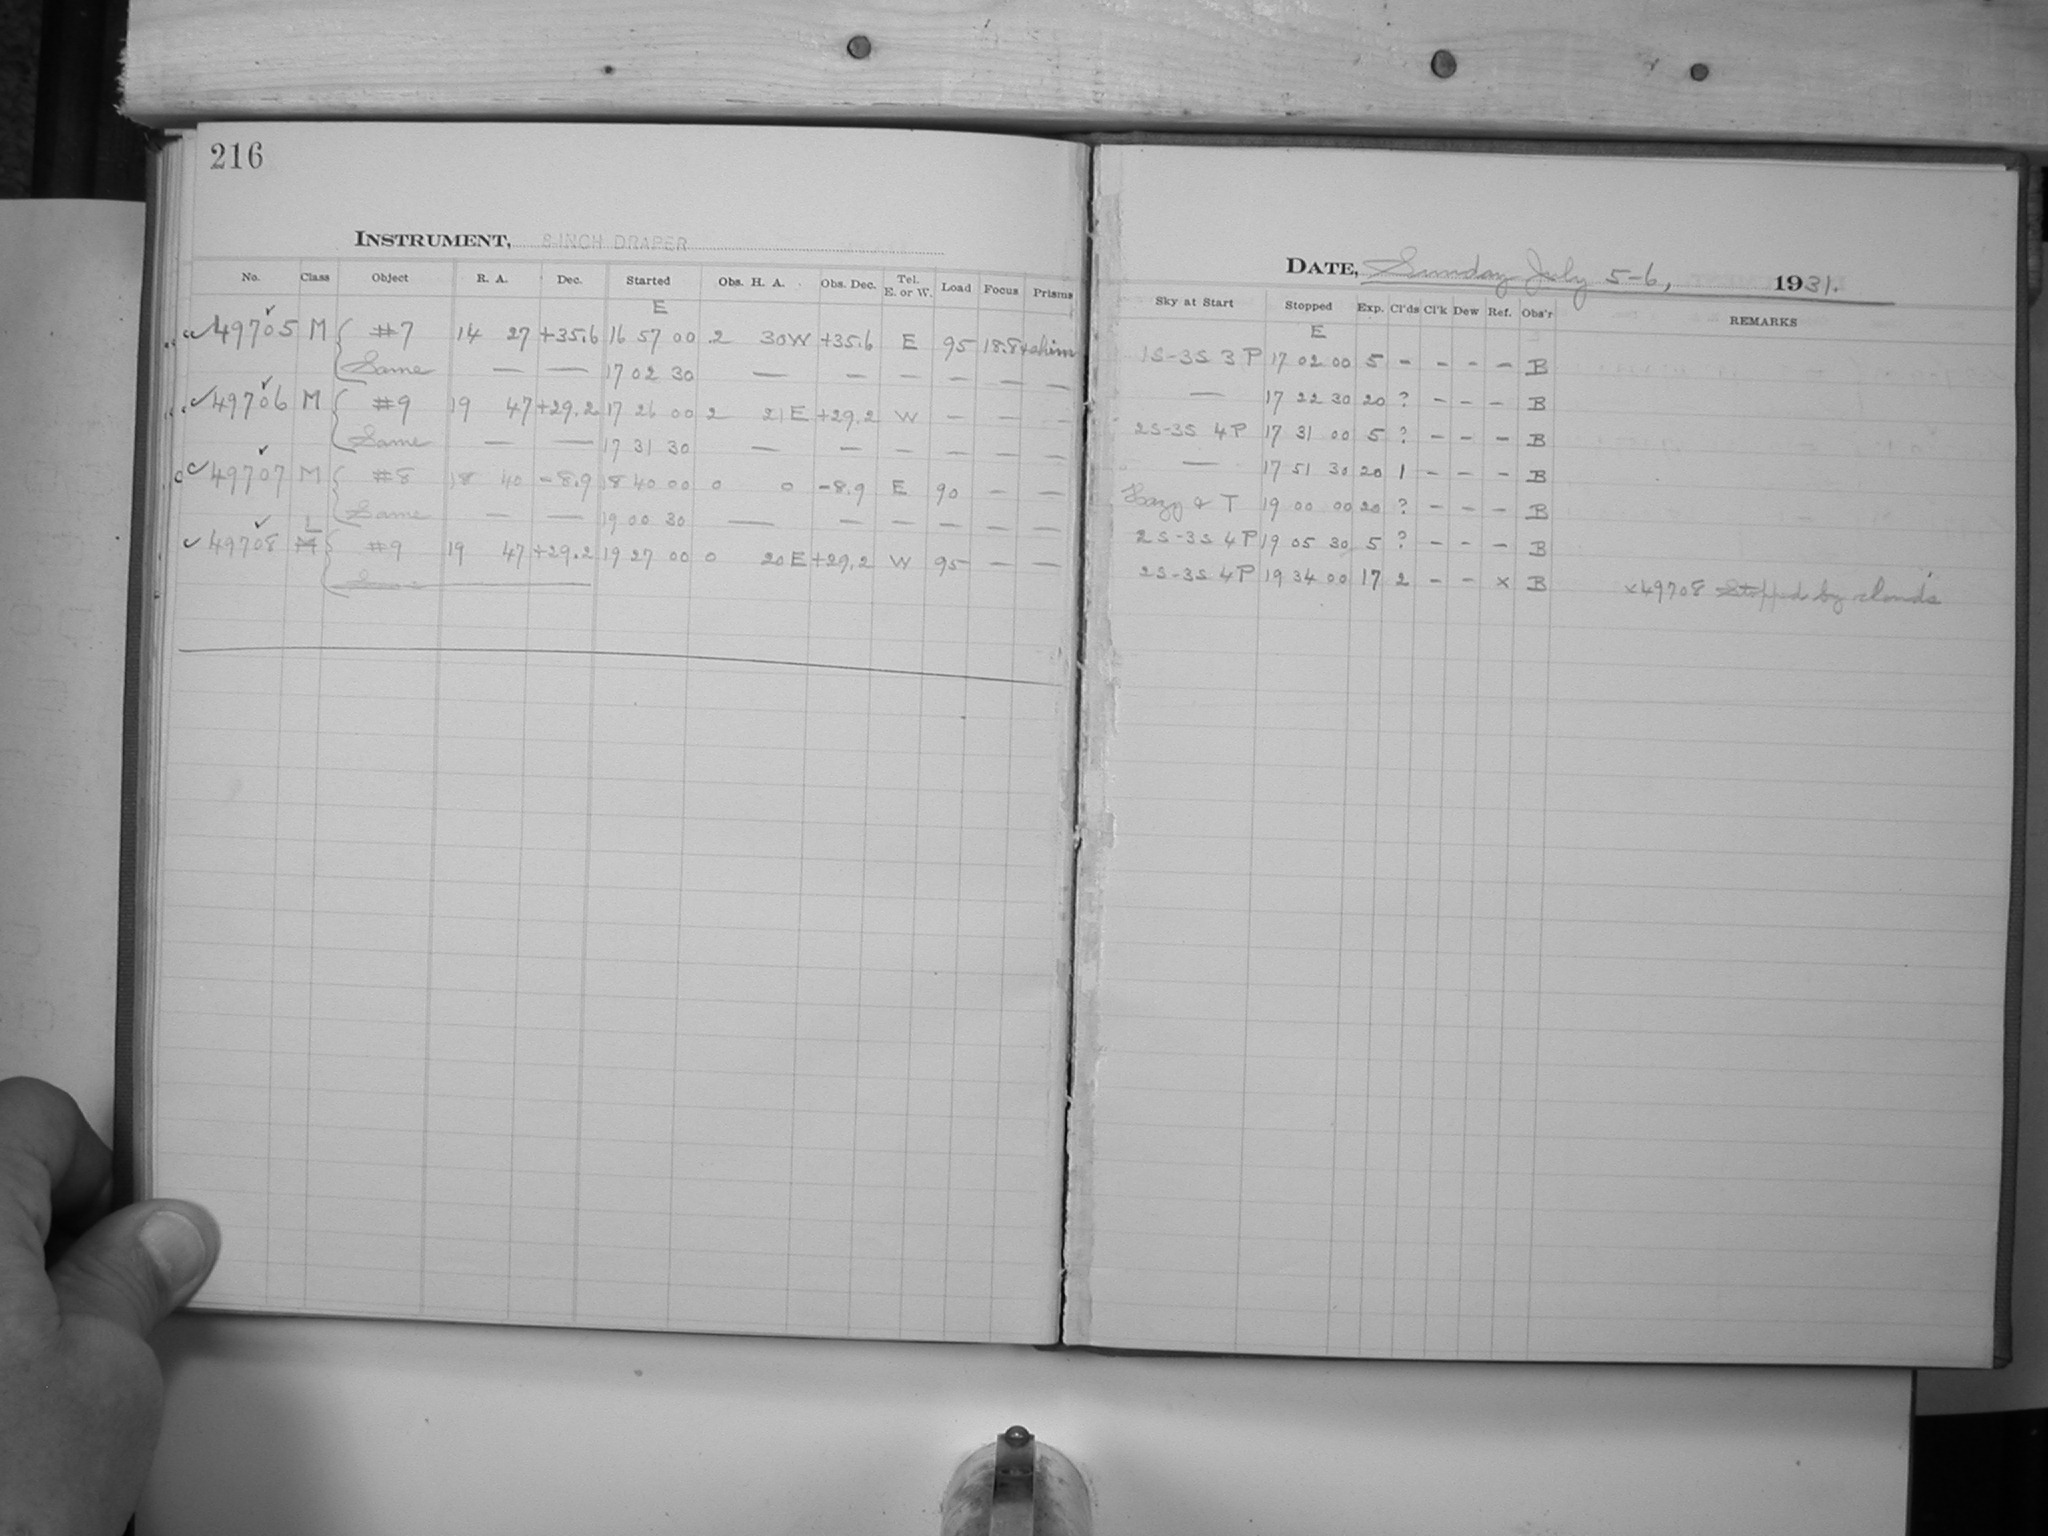 216
INSTRUMENT, 8-INCH DRAPER
No. Class Object R. A. Dec. Started Obs. H. A. Obs. Dec. Tel. E. or W. Load Focus Prisms
E
49705 M #7 14 27 +35.6 16 57 00 2 30W +35.6 E 95 18.8
Same — — 17 02 30 — — — — — —
49706 M #9 19 47 +29.2 17 26 00 2 21E +29.2 W — — —
Same — — 17 31 30 — — — — — —
49707 M #8 18 40 -8.9 18 40 00 0 0 -8.9 E 90 — —
Same — — 19 00 30 — — — — — —
L
49708 M #9 19 47 +29.2 19 27 00 0 20E +29.2 W 95 — —
Same
DATE, Sunday July 5-6, 1931.
Sky at Start Stopped Exp. Cl'ds Cl'k Dew Ref. Obs'r REMARKS
E
1S-3S 3P 17 02 00 5 - - - - B
— 17 22 30 20 ? - - - B
2S-3S 4P 17 31 00 5 ? - - - B
— 17 51 30 20 1 - - - B
Hazy & T 19 00 00 20 ? - - - B
2S-3S 4P 19 05 30 5 ? - - - B
2S-3S 4P 19 34 00 17 2 - - x B x49708 Stopped by clouds